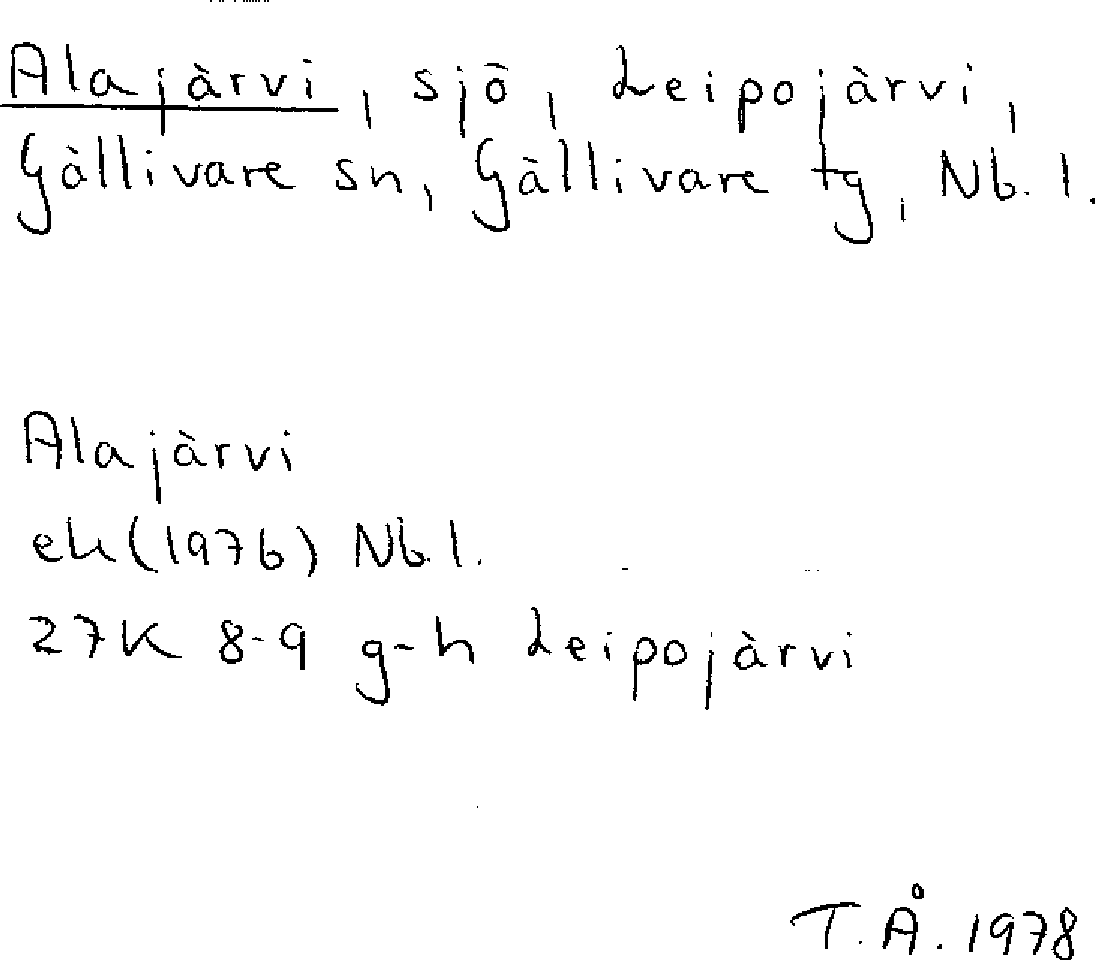 Alajärvi, sjö, Leipojärvi,
Gällivare sn, Gällivare tg, Nb. l.
Alajärvi
ek (1976) Nb. l.
27K 8-9 g-h Leipojärvi
T.Å. 1978